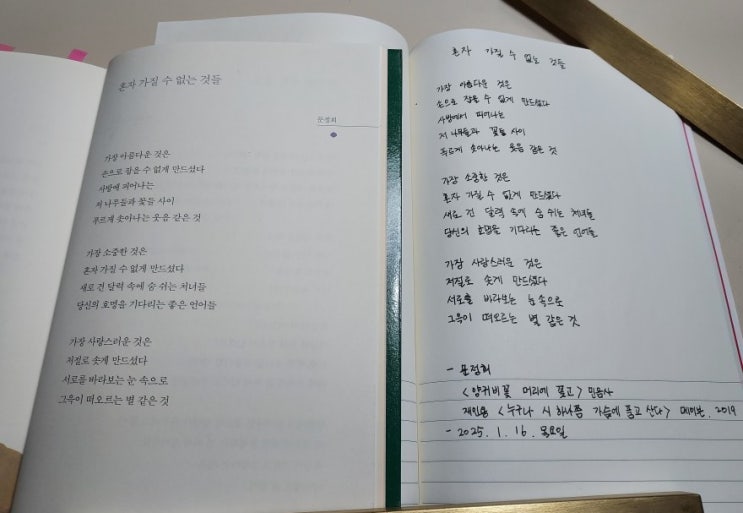 혼자 가질 수 없는 것들
문정희
가장 아름다운 것은
손으로 잡을 수 없게 만드셨다
사방에 피어나는
저 나무들과 꽃들 사이
푸르게 솟아나는 웃음 같은 것
가장 소중한 것은
혼자 가질 수 없게 만드셨다
새로 건 달력 속에 숨 쉬는 처녀들
당신의 호명을 기다리는 좋은 언어들
가장 사랑스러운 것은
저절로 솟게 만드셨다
서로를 바라보는 눈 속으로
그윽이 떠오르는 별 같은 것
혼자 가질 수 없는 것들
가장 아름다운 것은
손으로 잡을 수 없게 만드셨다
사방에서 피어나는
저 나무들과 꽃들 사이
푸르게 솟아나는 웃음 같은 것
가장 소중한 것은
혼자 가질 수 없게 만드셨다
새로 건 달력 속에 숨 쉬는 처녀들
당신의 호명을 기다리는 좋은 언어들
가장 사랑스러운 것은
저절로 솟게 만드셨다
서로를 바라보는 눈 속으로
그윽이 떠오르는 별 같은 것
- 문정희
<양귀비꽃 머리에 꽂고> 민음사
재인용 <누구나 시 하나쯤 가슴에 품고 산다> 메이븐, 2019
- 2025. 1. 16. 목요일